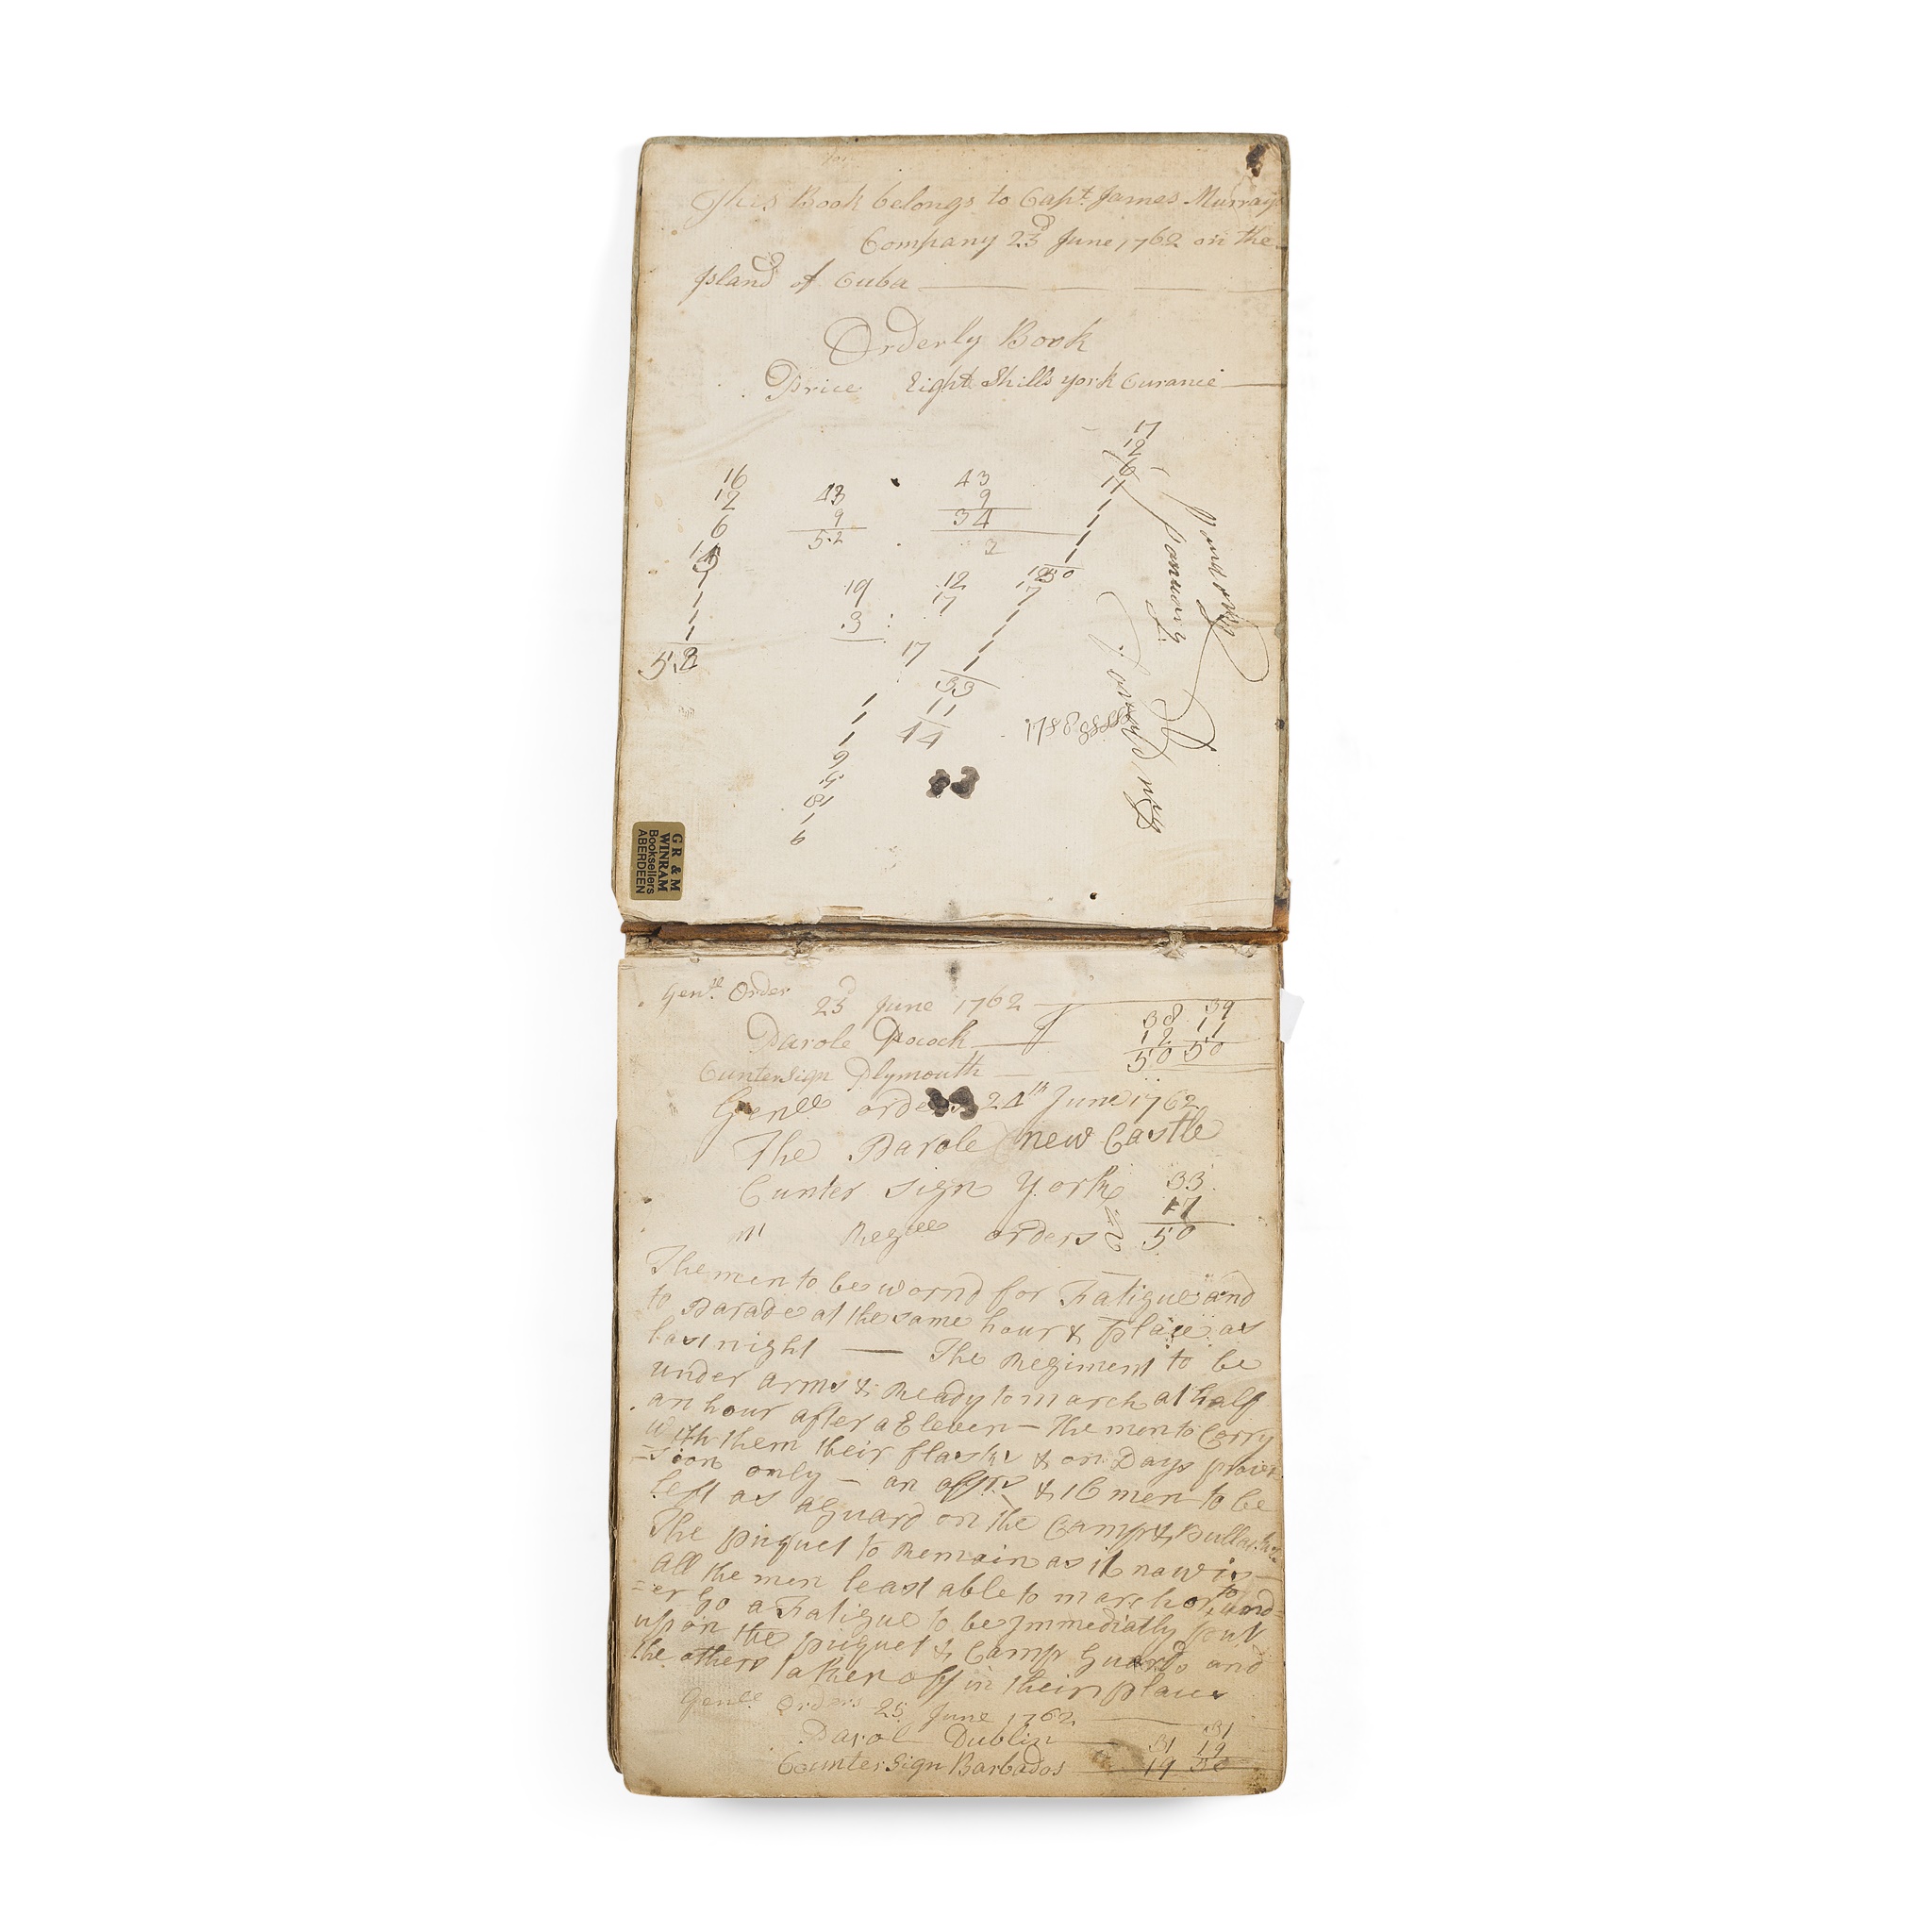 This Book belongs to Capt. James Murray's
Company 23d June 1762 on the
Island of Cuba
Orderly Book
Price Eight Shills york Curancie
16
12
6
1
1
1
1
43
9
52
43
9
34
2
17
12
6
11
1
1
1
1
50
19
3
12
17
17
17
1
1
1
33
11
44
1
1
1
6
18
1
G R & M
WINRAM
Booksellers
ABERDEEN
Genll. Order 23d June 1762
Parole Pocock
Cuntersign Plymouth
38 39
12 11
50 50
Genll orders 24th June 1762
The Parole new Castle
Cunter sign York
33
17
50
Regll orders
The men to be wornd for Fatigue and
to Parade at the same hour & place as
last night — The Regiment to be
under arms & Ready to march at half
an hour after a Eleven — The men to Carry
with them their flasks & on Days provi
=sion only — an offrs & 16 men to be
left as a Guard on the Camp &
The piquet to Remain as it now is —
all the men least able to march or to und=
=er go a Fatigue to be Immediatly put
upon the piquet & Camp Guards and
the others taken off in their place
Genll Orders 25 June 1762
Parol Dublin
CounterSign Barbados
31 31
19 19
50